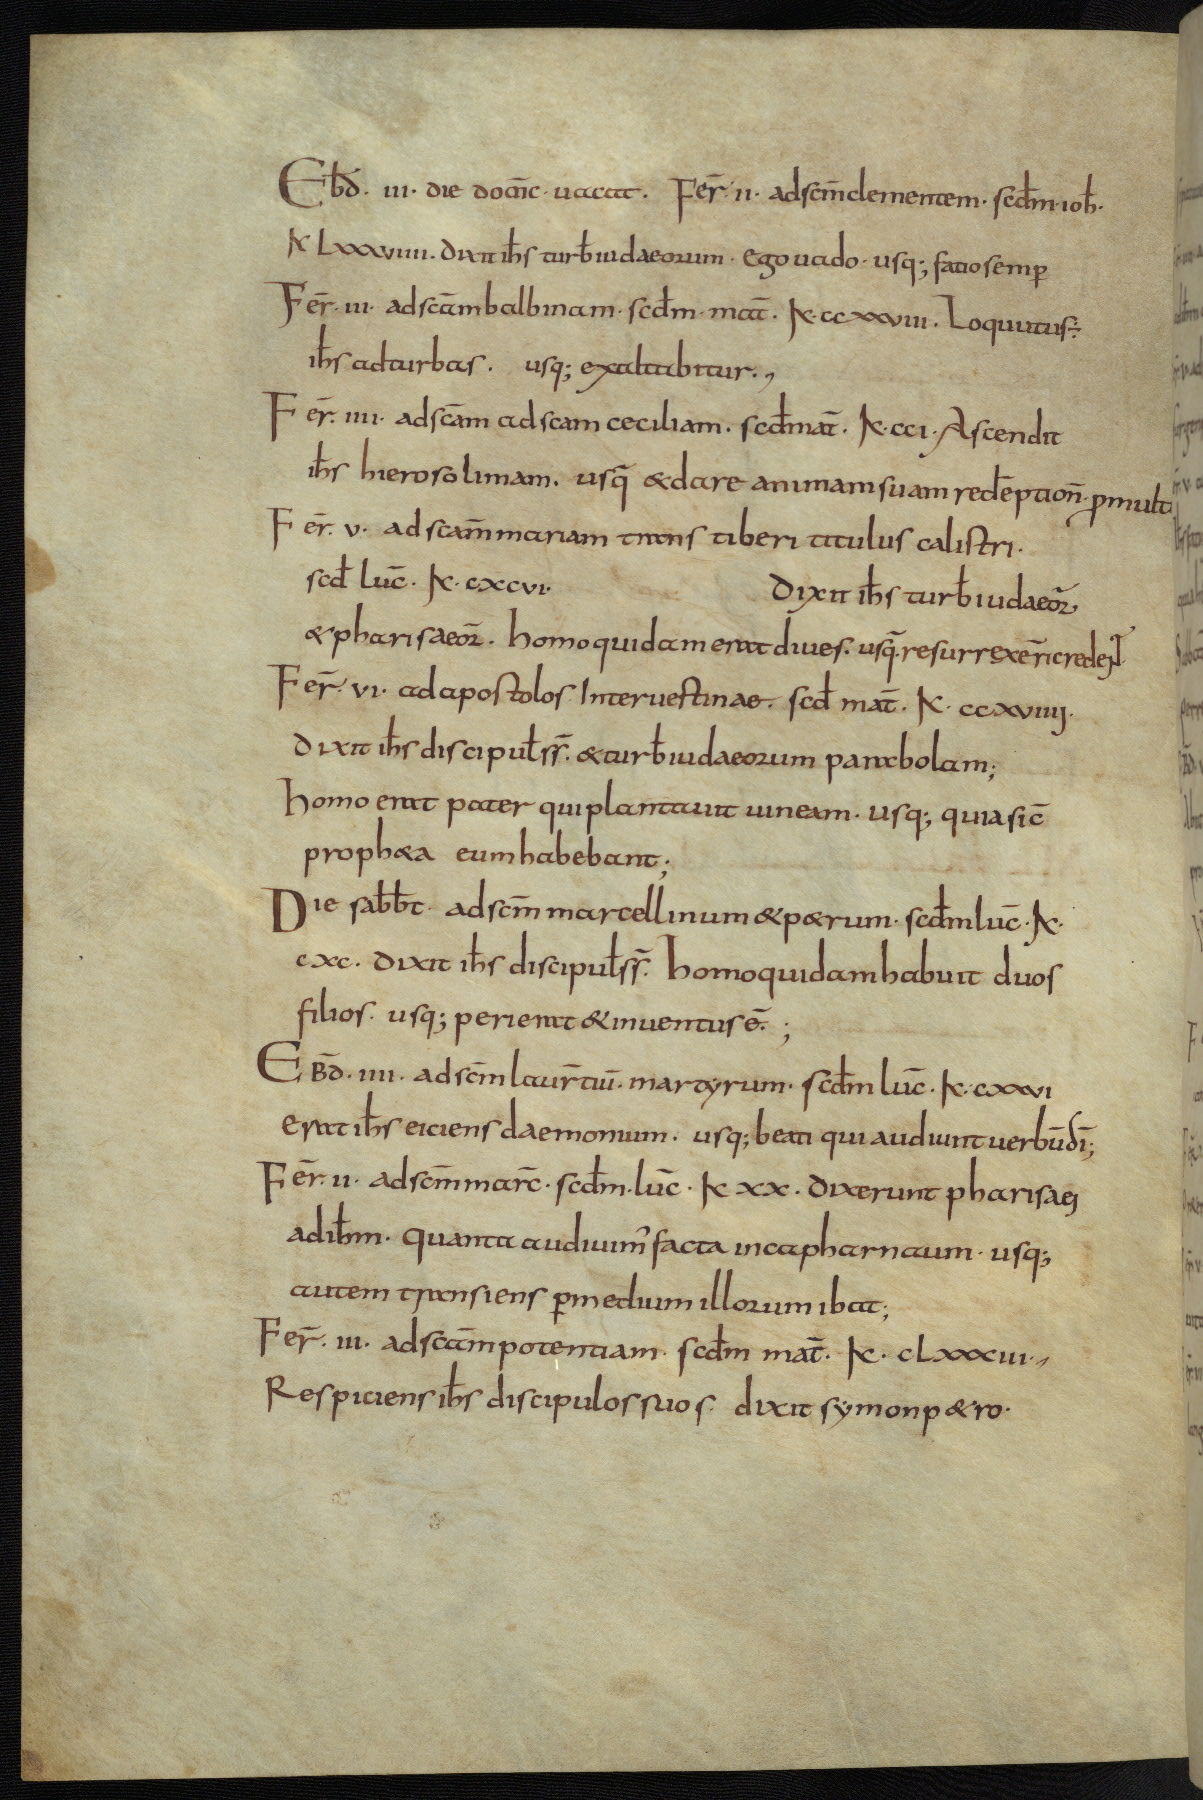 Ebd̄. iii. die domīc. uacat. Fer̄. ii. ad scm̄ clementem. scd̄m. ioh̄.
K̄ Lxxxviiii. dixit ih̄s turb̄ iudaeorum. ego uado. usq; facio semp̄
Fer̄. iii. ad scām balbinam. scd̄m. mat̄. K̄. ccxxviii. Loquutus:
ih̄s ad turbas. usq; exaltabitur.,
Fer̄. iiii. ad scām ad scam ceciliam. scd̄ mat̄. K̄. cci. Ascendit
ih̄s hierosolimam. usq̄ & dare animam suam redēption̄. p̄ mult
Fer̄. v. ad scam̄ mariam trans tiberi titulus calistri.
scd̄ luc̄. K̄. cxcvi. Dixit ih̄s turb̄ iudaeor̄
& pharisaeor̄. homo quidam erat diues. usq̄. resurrexer̄ credēt
Fer̄. vi. ad apostolos Inter uestinae. scd̄ mat̄. K̄. ccxviiij.
dixit ih̄s discipul̄ ss̄. & turb̄ iudaeorum parabolam;
homo erat pater qui plantauit uineam. usq; quia sic̄
proph&a eum habebant;
Die sab̄b̄t. ad scm̄ marcellinum & p&rum. scd̄m luc̄. K̄.
cxc. dixit ih̄s discipul̄ ss̄. homo quidam habuit duos
filios. usq; perierat & inuentus ē. ;
Ebd̄. iiii. ad scm̄ laur̄tiū. martyrum. scd̄m luc̄. K̄. cxxvi
erat ih̄s eiciens daemonium. usq; beati qui audiunt uerbū dī;
Fer̄. ii. ad scm̄ marc̄. scd̄m. luc̄. K̄ xx. dixerunt pharisaei
ad ih̄m. quanta audiuim᾽ facta in capharnaum. usq;
autem transiens p̄ medium illorum ibat;
Fer̄. iii. ad scām potentiam. scd̄m mat̄. K̄. cLxxxiii.,
Respiciens ih̄s discipulos suos dixit symon p&ro.